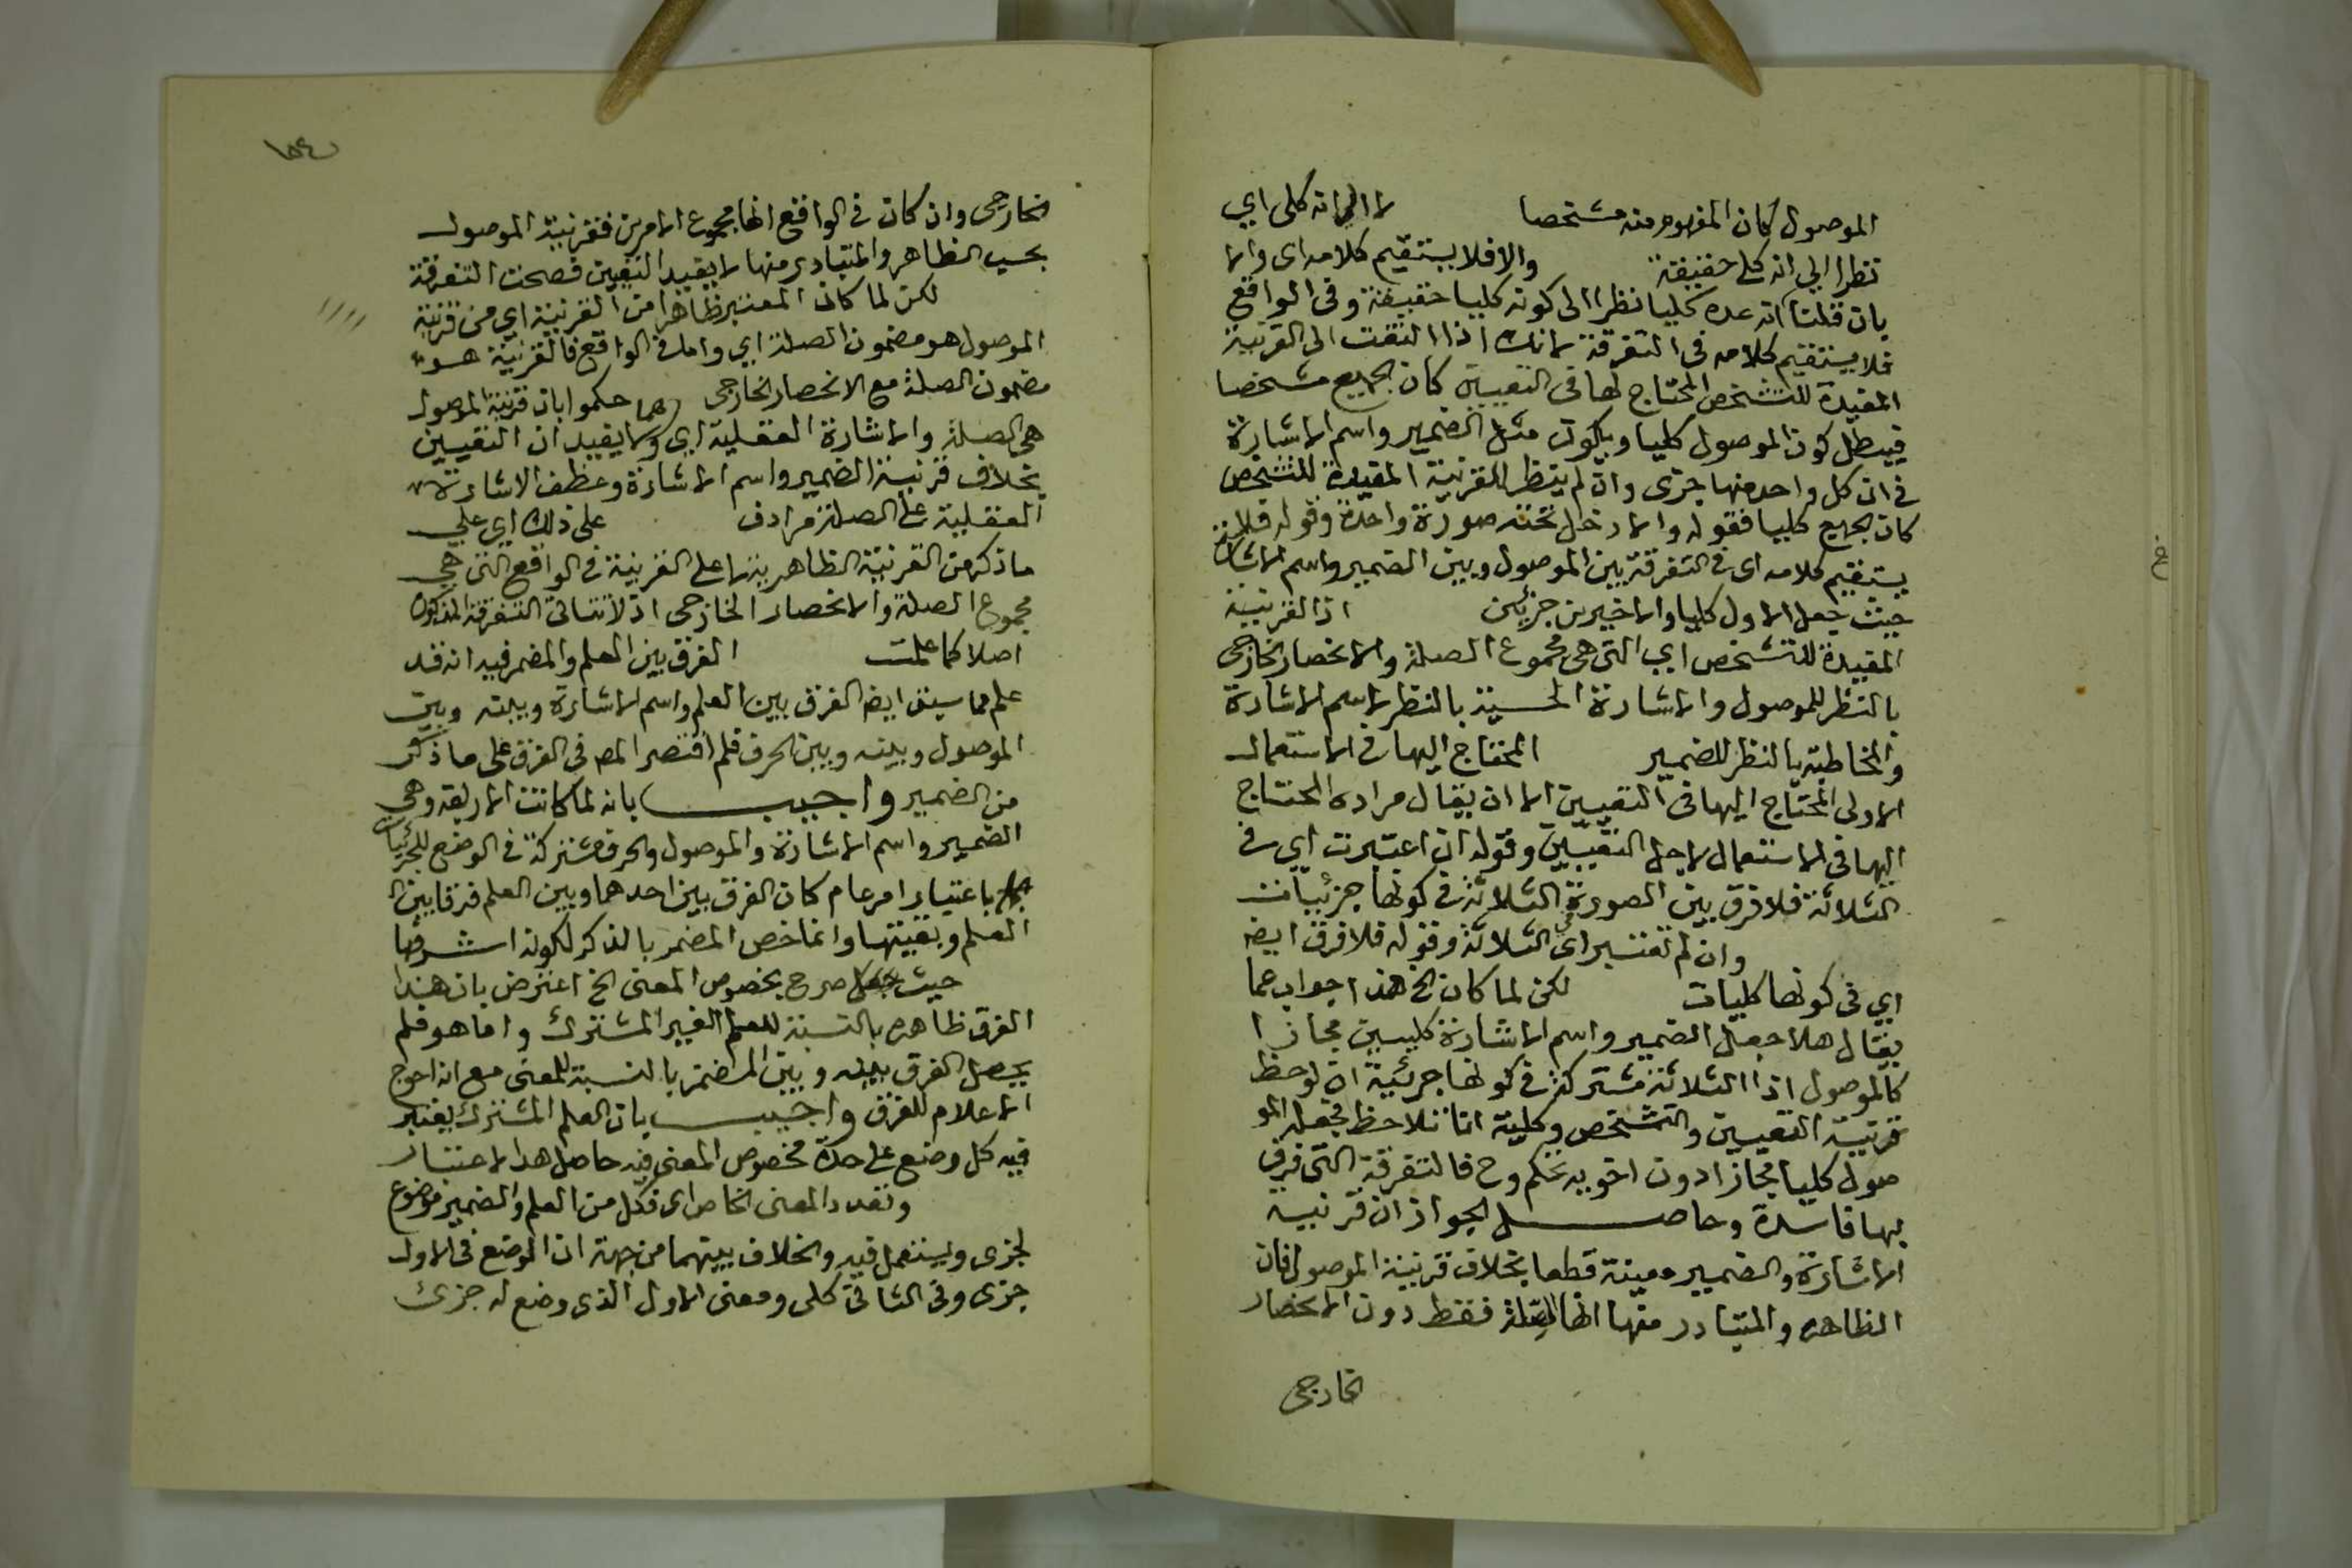 الموصول كان المفهوم منه مشخصا لا الى انه كلى اي
نظرا الي انه كلي حقيقة والا فلا يستقيم كلامه اى والا
بان قلنا انه عده كليا نظرا الى كونه كليا حقيقة وفى الواقع
فلا يستقيم كلامه فى التفرقة لانك اذا التفت الى القرينة
المفيدة للتشخص المحتاج لها فى التعيين كان الجميع مشخصا
فيبطل كون الموصول كليا ويكون مثل الضمير واسم الاشارة
فى ان كل واحد منها جزى وان لم ينظر للقرينة المفيدة للتشخص
كان الجميع كليا فقوله والا دخل تحته صورة واحدة وقوله فلا
يستقيم كلامه اى فى التفرقة بين الموصول وبين الضمير واسم الاشارة
حيث جعل الاول كليا والاخيرين جزئين اذ القرينة
المفيدة للتشخص اي التى هى مجموع الصلة والانحصار الخارجى
بالنظر للموصول والاشارة الحسية بالنظر لاسم الاشارة
والمخاطبة بالنظر للضمير المحتاج اليها فى الاستعمال
الاولى المحتاج اليها فى التعيين الا ان يقال مراده المحتاج
اليها فى الاستعمال لاجل التعيين وقوله ان اعتبرت اي فى
الثلاثة فلا فرق بين الصورة الثلاثة فى كونها جزئيات
وان لم تعتبر اى فى الثلاثة وقوله فلا فرق ايضا
اي فى كونها كليات لكن لما كان الخ هذا جواب عما
يقال هلا جعل الضمير واسم الاشارة كليين مجازا
كالموصول اذ الثلاثة مشتركة فى كونها جزئية ان لوحظ
قرينة التعيين والتشخص وكلية ان لم تلاحظ فجعل المو
صول كليا مجازا دون اخويه تحكم وح فالتفرقة التى فرق
بها فاسدة وحاصل الجواب ان قرينة
الاشارة والضمير معينة قطعا بخلاف قرينة الموصول فان
الظاهر والمتبادر منها انها الصلة فقط دون الانحصار
الخارجى
الخارجى وان كان فى الواقع انها مجموع الامرين فقرينة الموصول
بحسب الظاهر والمتبادر منها لا يفيد التعيين فصحت التفرقة
لكن لما كان المعتبر ظاهرا من القرينة اي من قرينة
الموصول هو مضمون الصلة اي واما فى الواقع فالقرينة هو
مضمون الصلة مع الانحصار الخارجى حكموا بان قرينة الموصول
هى الصلة والاشارة العقلية اي ولا يفيدان التعيين
بخلاف قرينة الضمير واسم الاشارة وعطف الاشارة
العقلية على الصلة مرادف على ذلك اي على
ما ذكر من القرينة الظاهرية لا على القرينة فى الواقع التى هي
مجموع الصلة والانحصار الخارجى اذ لا تتاتى التفرقة المذكورة
اصلا كما علمت الفرق بين العلم والمضمر فيه انه قد
علم مما سبق ايضا الفرق بين العلم واسم الاشارة وبينه وبين
الموصول وبينه وبين الحرف فلم اقتصر المص فى الفرق على ما ذكر
من الضمير واجيب بانه لما كانت الاربعة وهي
الضمير واسم الاشارة والموصول والحرف مشتركة فى الوضع للجزئيات
باعتبار امر عام كان الفرق بين احدهما وبين العلم فرقا بين
العلم وبقيتها وانما خص المضمر بالذكر لكونه اشرفها
حيث صرح بخصوص المعنى الخ اعترض بان هذا
الفرق ظاهره بالنسبة للعلم الغير المشترك واما هو فلم
يحصل الفرق بينه وبين المضمر بالنسبة للمعنى مع انه احوج
الاعلام للفرق واجيب بان العلم المشترك يعتبر
فيه كل وضع على حدة مخصوص المعنى فيه حاصل هذا الاعتبار
وتعدد المعنى الخاص اى فكل من العلم والضمير موضوع
لجزى ويستعمل فيه والخلاف بينهما من جهة ان الوضع فى الاول
جزى وفى الثانى كلى ومعنى الاول الذى وضع له جزئ